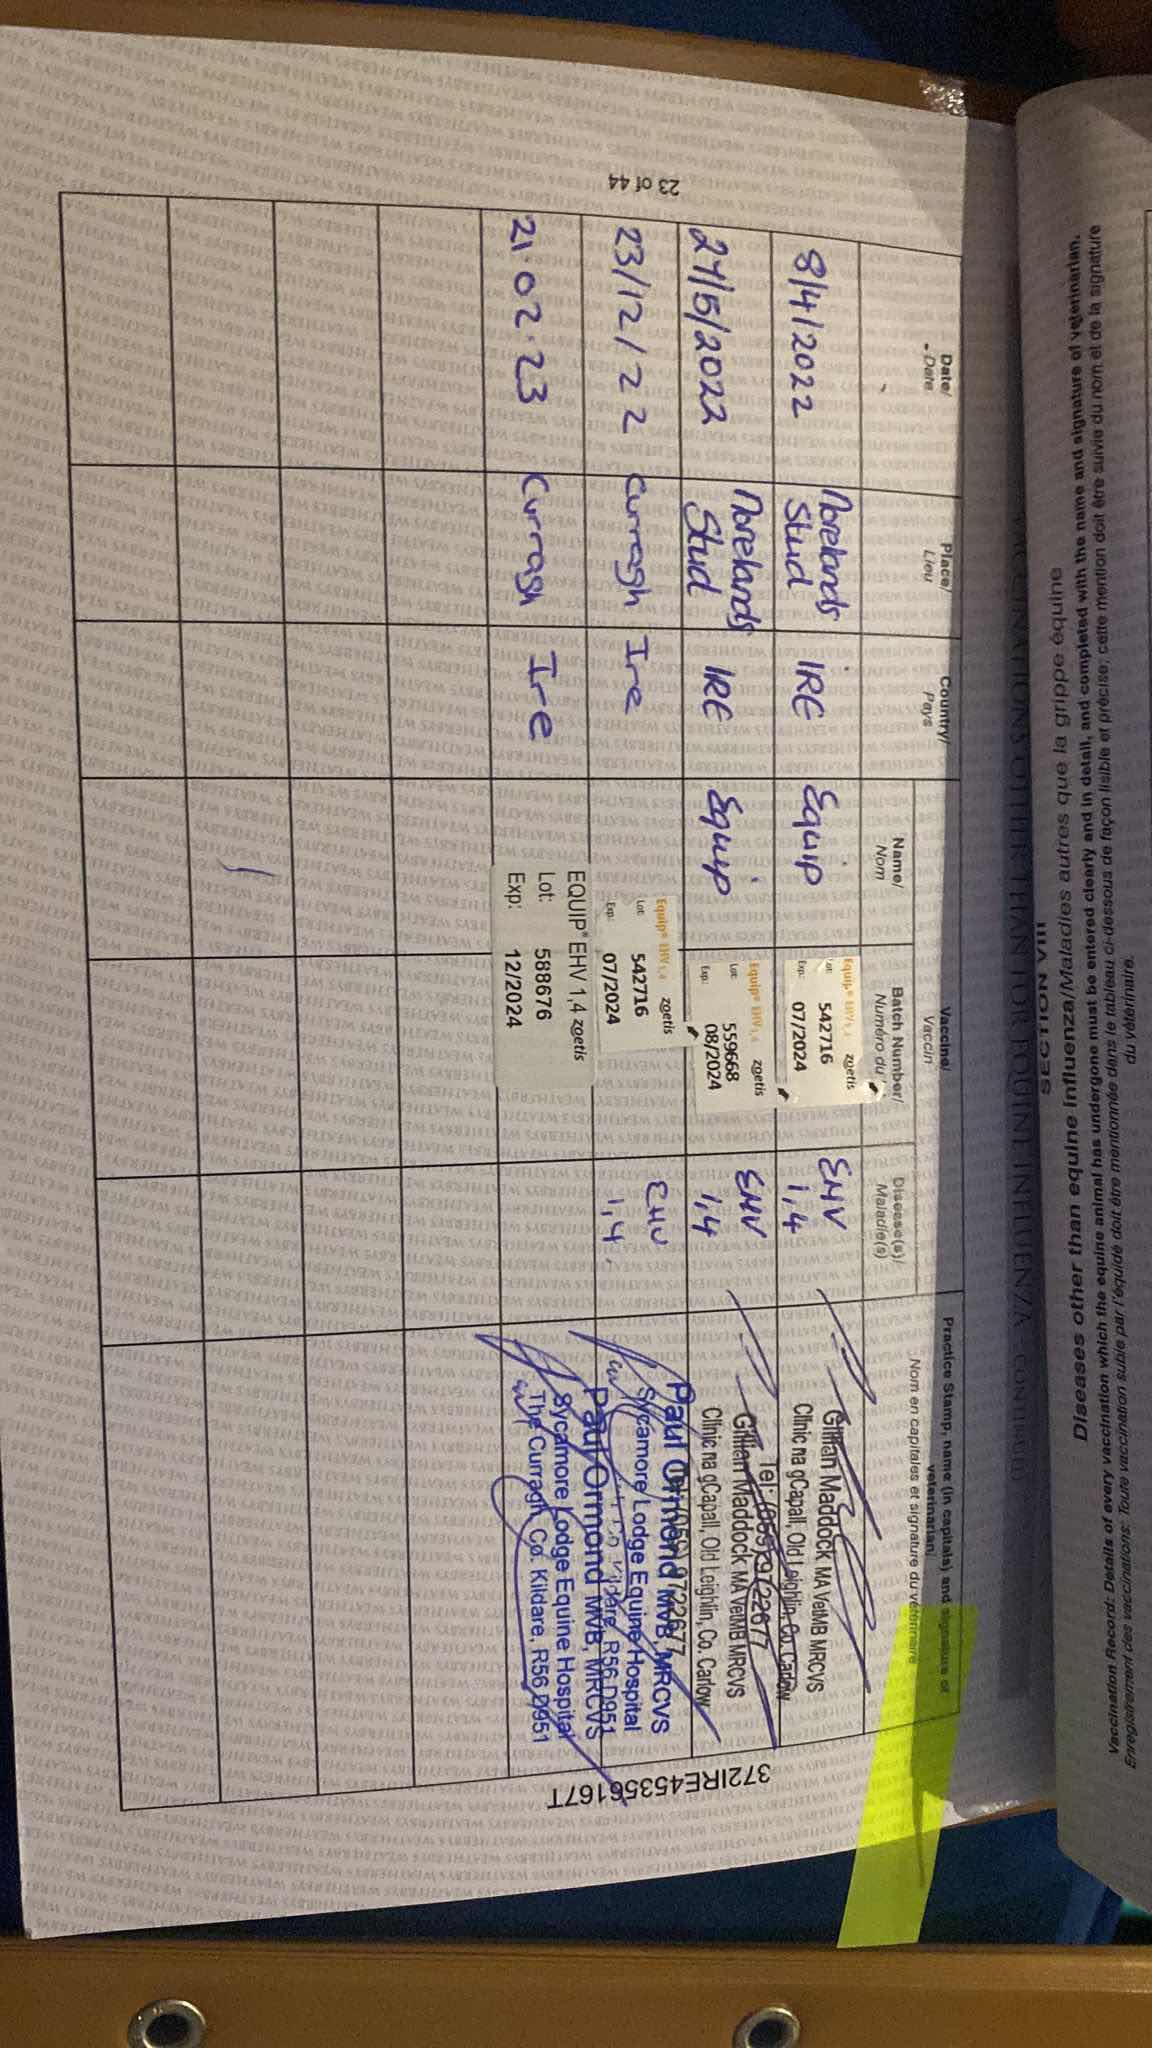 SECTION VIII
Diseases other than equine influenza/Maladies autres que la grippe équine
Vaccination Record: Details of every vaccination which the equine animal has undergone must be entered clearly and in detail, and completed with the name and signature of veterinarian.
Enregistrement des vaccinations: Toute vaccination subie par l'équidé doit être mentionnée dans le tableau ci-dessous de façon lisible et précise; cette mention doit être suivie du nom et de la signature
du vétérinaire.
VACCINATIONS OTHER THAN FOR EQUINE INFLUENZA CONTINUED
Date/
Date
Place/
Lieu
Country/
Pays
Vaccine/
Vaccin
Name/
Nom
Batch Number/
Numéro du
Disease(s)/
Maladie(s)
Practice Stamp, name (in capitals) and signature of
veterinarian
Nom en capitales et signature du vétérinaire
8/4/2022
Norelands
Stud
IRE
Equip
Equip® EHV1,4 zoetis
Lot: 542716
Exp: 07/2024
EHV
1,4
Gillian Maddock MA VetMB MRCVS
Clinic na gCapall, Old Leighlin, Co. Carlow
Tel: (059) 9722677
27/5/2022
Norelands
Stud
IRE
Equip
Equip® EHV1,4 zoetis
Lot: 559668
Exp: 08/2024
EHV
1,4
Gillian Maddock MA VetMB MRCVS
Clinic na gCapall, Old Leighlin, Co. Carlow
(059) 9722677
23/12/22
Curragh
Ire
Equip® EHV 1,4 zoetis
Lot: 542716
Exp: 07/2024
EHV
1,4.
Paul Ormond MVB, MRCVS
Sycamore Lodge Equine Hospital
Co. Kildare, R56 D951
21.02.23
Curragh
Ire
EQUIP® EHV 1,4 zoetis
Lot: 588676
Exp: 12/2024
Paul Ormond MVB, MRCVS
Sycamore Lodge Equine Hospital
The Curragh, Co. Kildare, R56 D951
23 of 44
372IRE45356167T